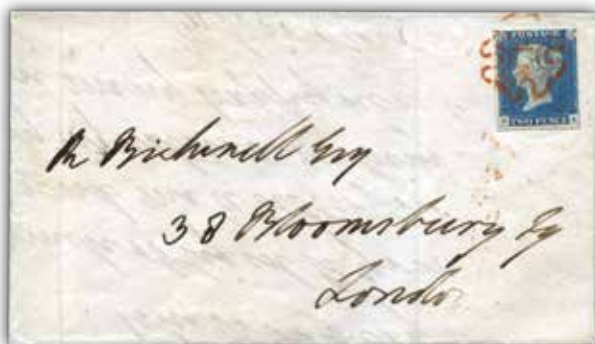 POSTAGE
TWO PENCE
R Bicknell Esq
38 Bloomsbury Sq
London